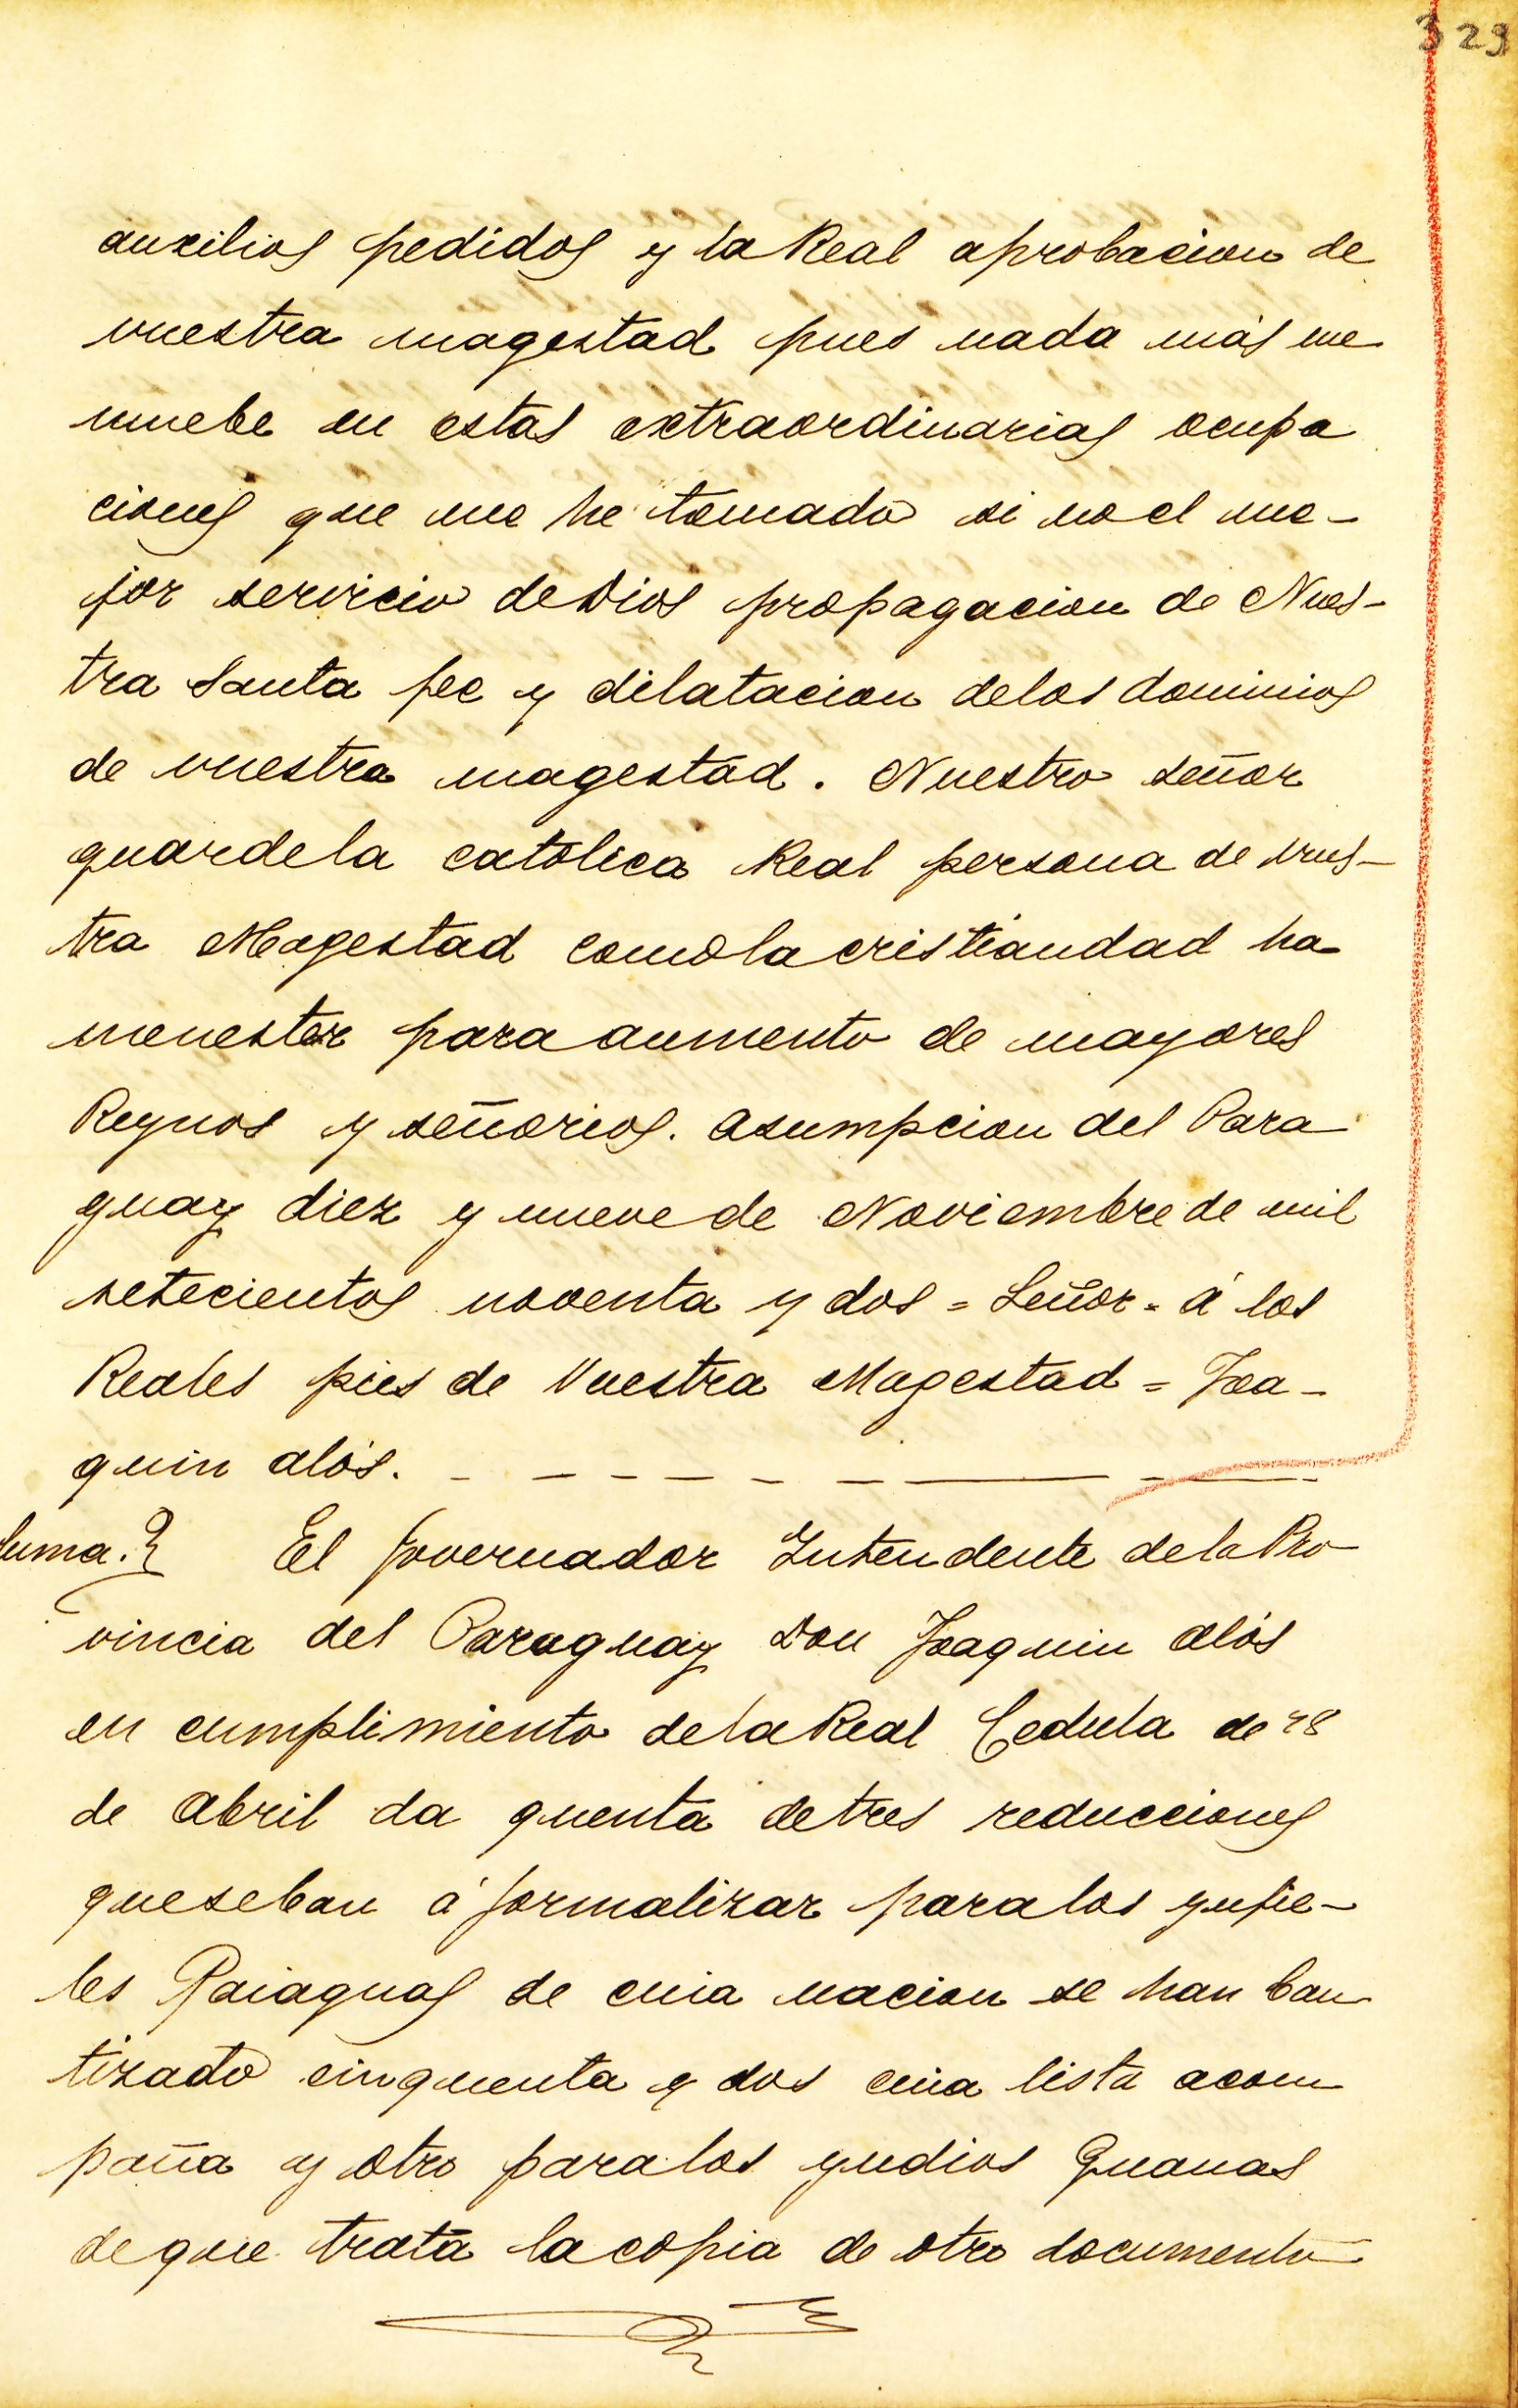 329
auxilios pedidos y la Real aprobacion de
vuestra magestad pues nada más me
muebe en estas extraordinarias ocupa
ciones que me he tomado si no el me-
jor servicio de Dios propagacion de Nues-
tra Santa fee y dilatacion delos dominios
de vuestra magestad. Nuestro señor
guardela católica Real persona de vues-
tra Magestad comola cristiandad ha
menester para aumento de mayores
Reynos y señorios. Asumpcion del Para
guay diez y nueve de Noviembre de mil
setecientos noventa y dos = Señor = á los
Reales pies de Vuestra Magestad = Joa-
quin alós. - - - - - - - -
Suma.} El Governador Intendente dela Pro
vincia del Paraguay Don Joaquin alós
en cumplimiento dela Real Cedula de 18
de Abril da quenta detres reducciones
queseban á formalizar paralos ynfie-
les Paiaguas de cuia nacion se han bau
tizado cinquenta y dos cuia lista acom
paña y otro paralos yndios Guanas
deque trata lacopia de otro documento